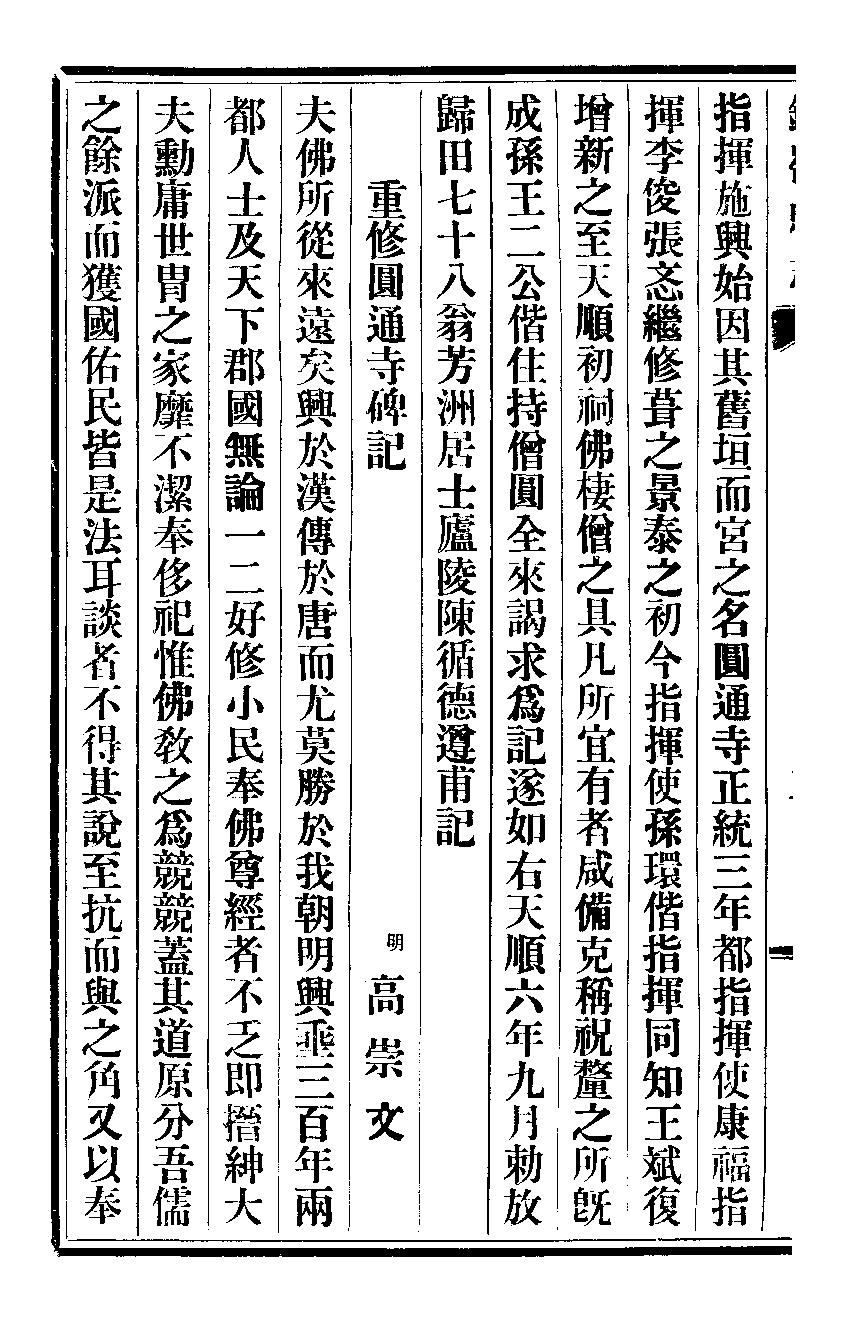 指揮施興始因其舊垣而宮之名圓通寺正統三年都指揮使康福指
揮李俊張忞繼修葺之景泰之初今指揮使孫環偕指揮同知王斌復
增新之至天順初祠佛棲僧之具凡所宜有者咸備克稱祝釐之所旣
成孫王二公偕住持僧圓全來謁求爲記遂如右天順六年九月勅放
歸田七十八翁芳洲居士廬陵陳循德遵甫記
重修圓通寺碑記
明 高崇文
夫佛所從來遠矣興於漢傳於唐而尤莫勝於我朝明興乖三百年兩
都人士及天下郡國無論一二好修小民奉佛尊經者不乏即搢紳大
夫勳庸世胄之家靡不潔奉侈祀惟佛敎之爲競競蓋其道原分吾儒
之餘派而獲國佑民皆是法耳談者不得其說至抗而與之角又以奉